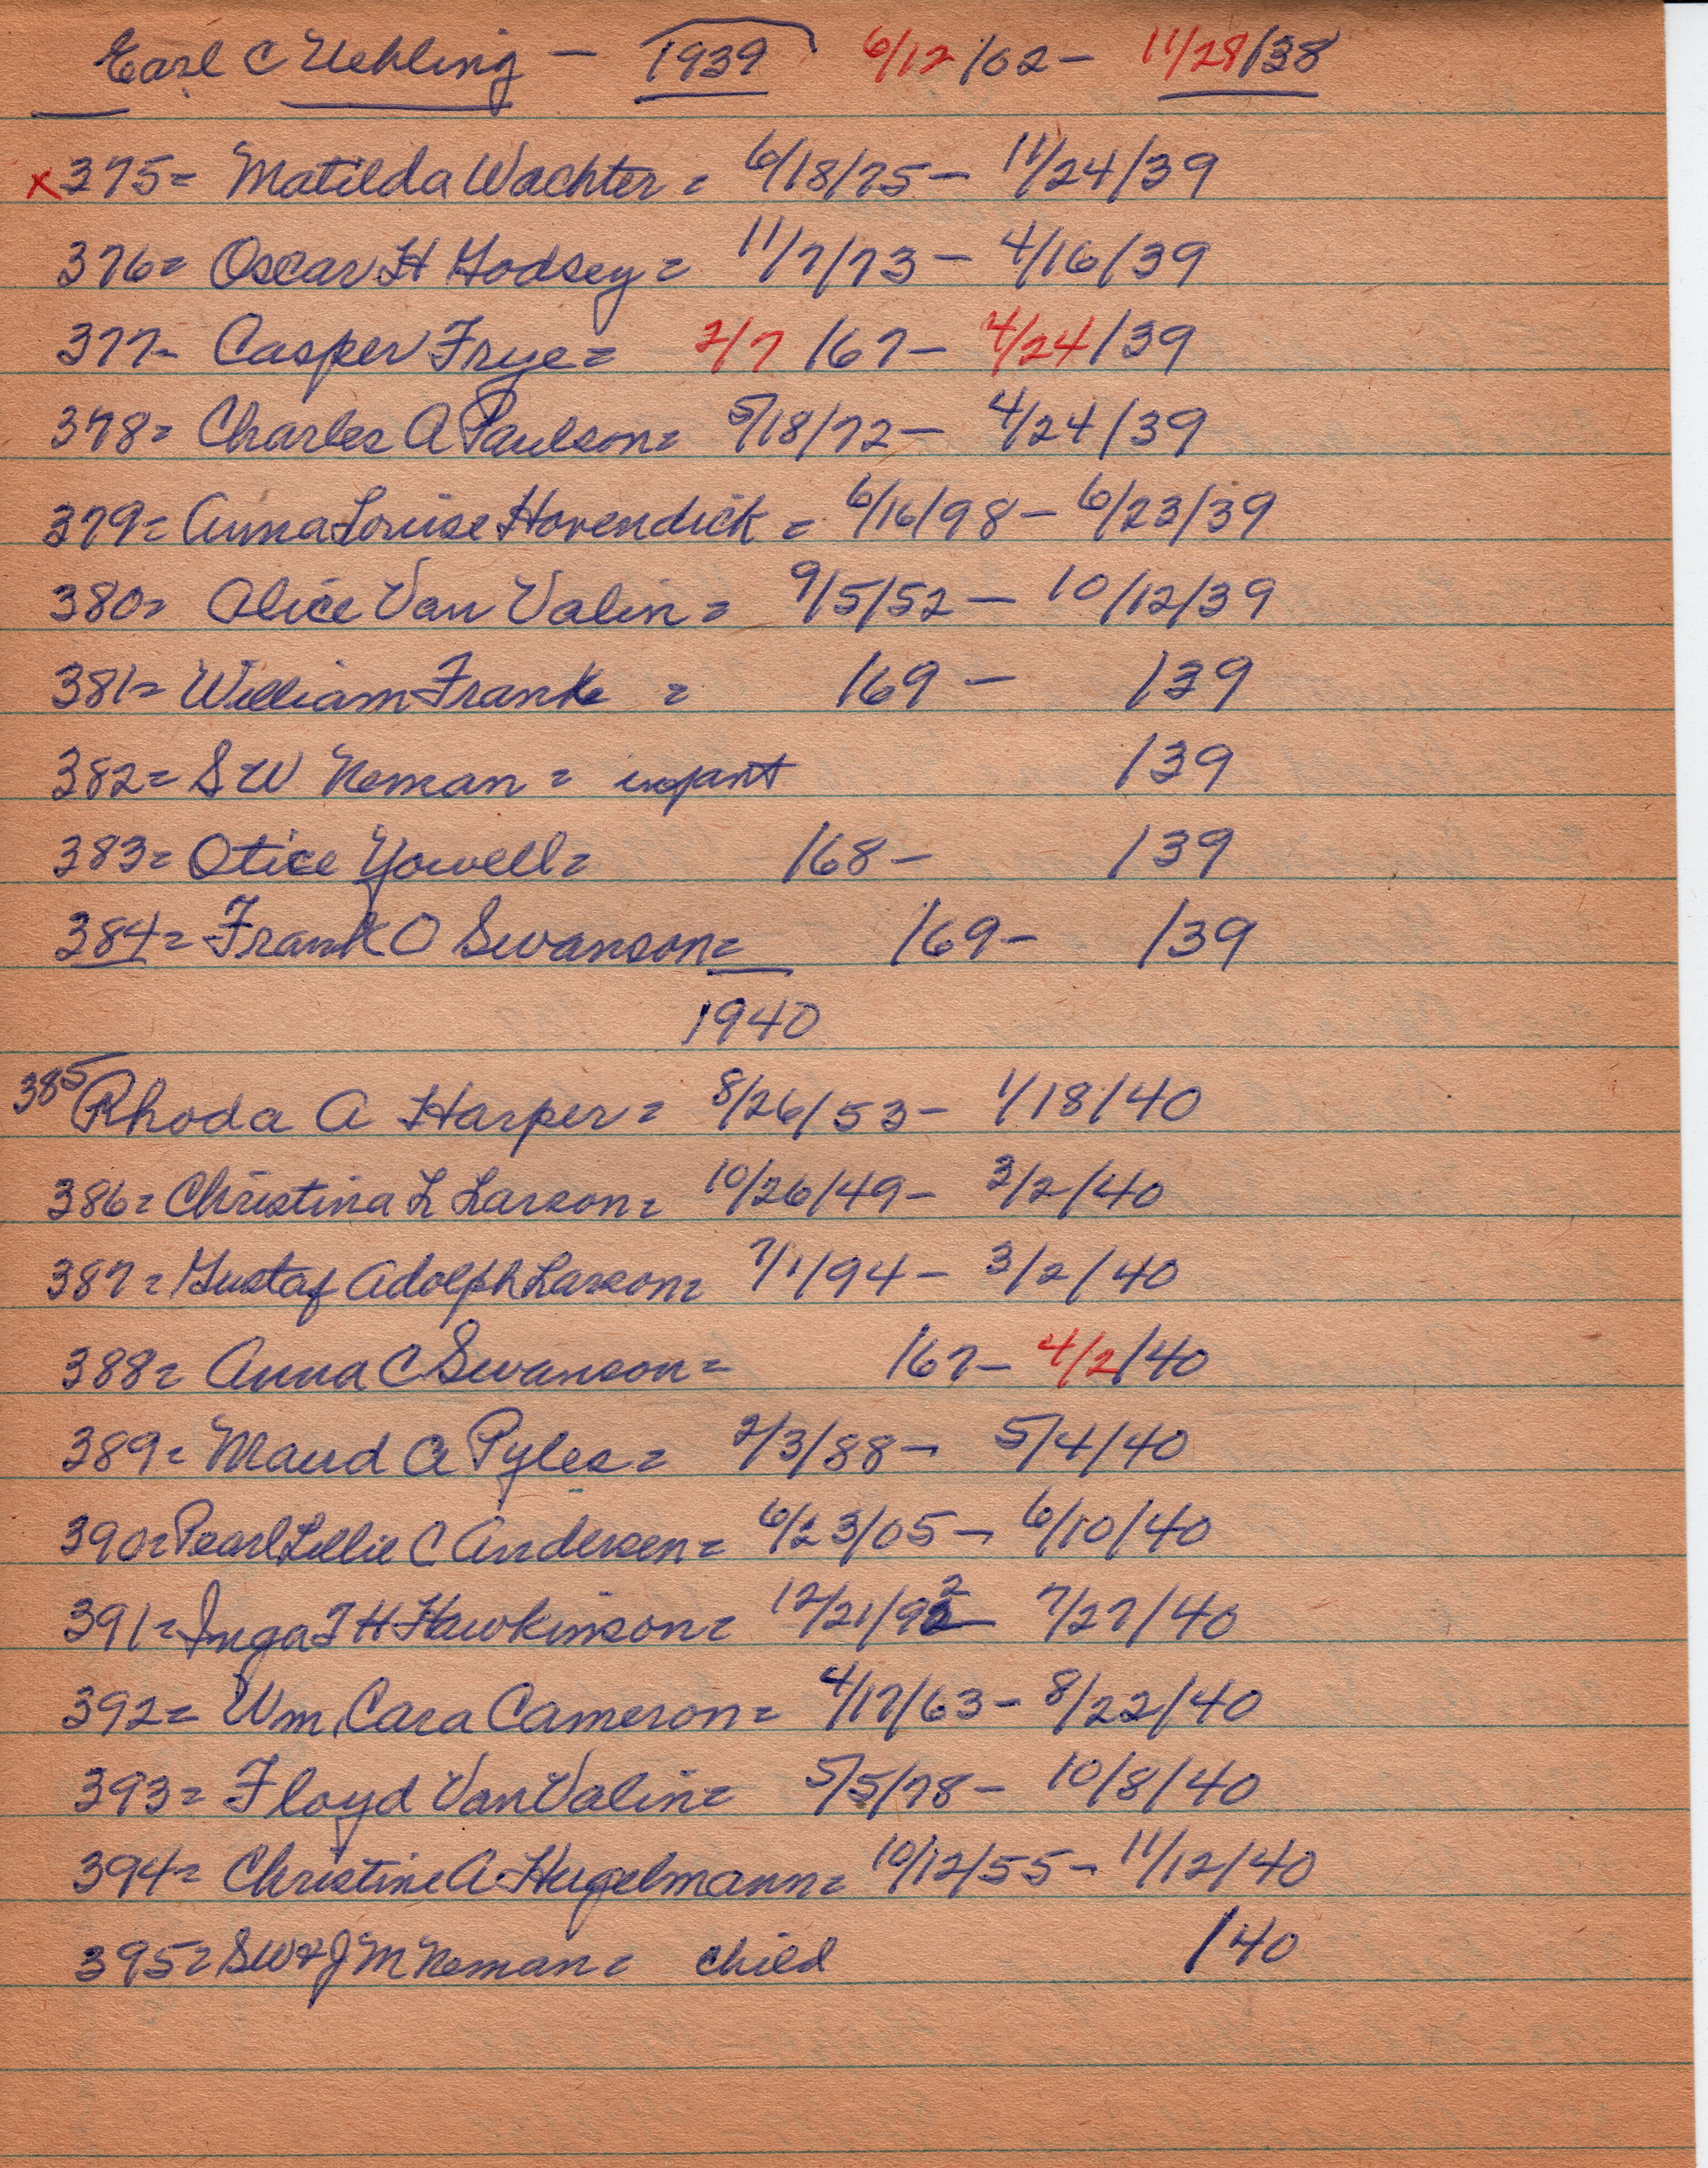 Earl C Uehling — 1939 6/12/02 - 11/28/38
x 375= Matilda Wachter = 6/18/75 - 11/24/39
376= Oscar H Godsey = 11/7/73 - 4/16/39
377= Casper Frye = 2/7/67 - 4/24/39
378= Charles A Paulson = 5/18/72 - 4/24/39
379= Anna Louise Hovendick = 6/16/98 - 6/23/39
380= Alice Van Valin = 9/5/52 - 10/12/39
381= William Frank = /69 - /39
382= S W Neman = infant /39
383= Otice Yowell = /68 - /39
384= Frank O Swanson = /69 - /39
1940
385 Rhoda A Harper = 8/26/53 - 1/18/40
386= Christina L Larson = 10/26/49 - 3/2/40
387= Gustaf Adolph Larson = 7/1/94 - 3/2/40
388= Anna C Swanson = /67 - 4/2/40
389= Maud A Pyles = 2/3/88 - 5/4/40
390= Pearl Lillie C Andersen = 6/23/05 - 6/10/40
391= Inga T H Hawkinson = 12/21/92 - 7/27/40
392= Wm Cara Cameron = 4/17/63 - 8/22/40
393= Floyd Van Valin = 5/5/78 - 10/8/40
394= Christine A Hugelmann = 10/12/55 - 11/12/40
395= SW & J M Neman = child /40